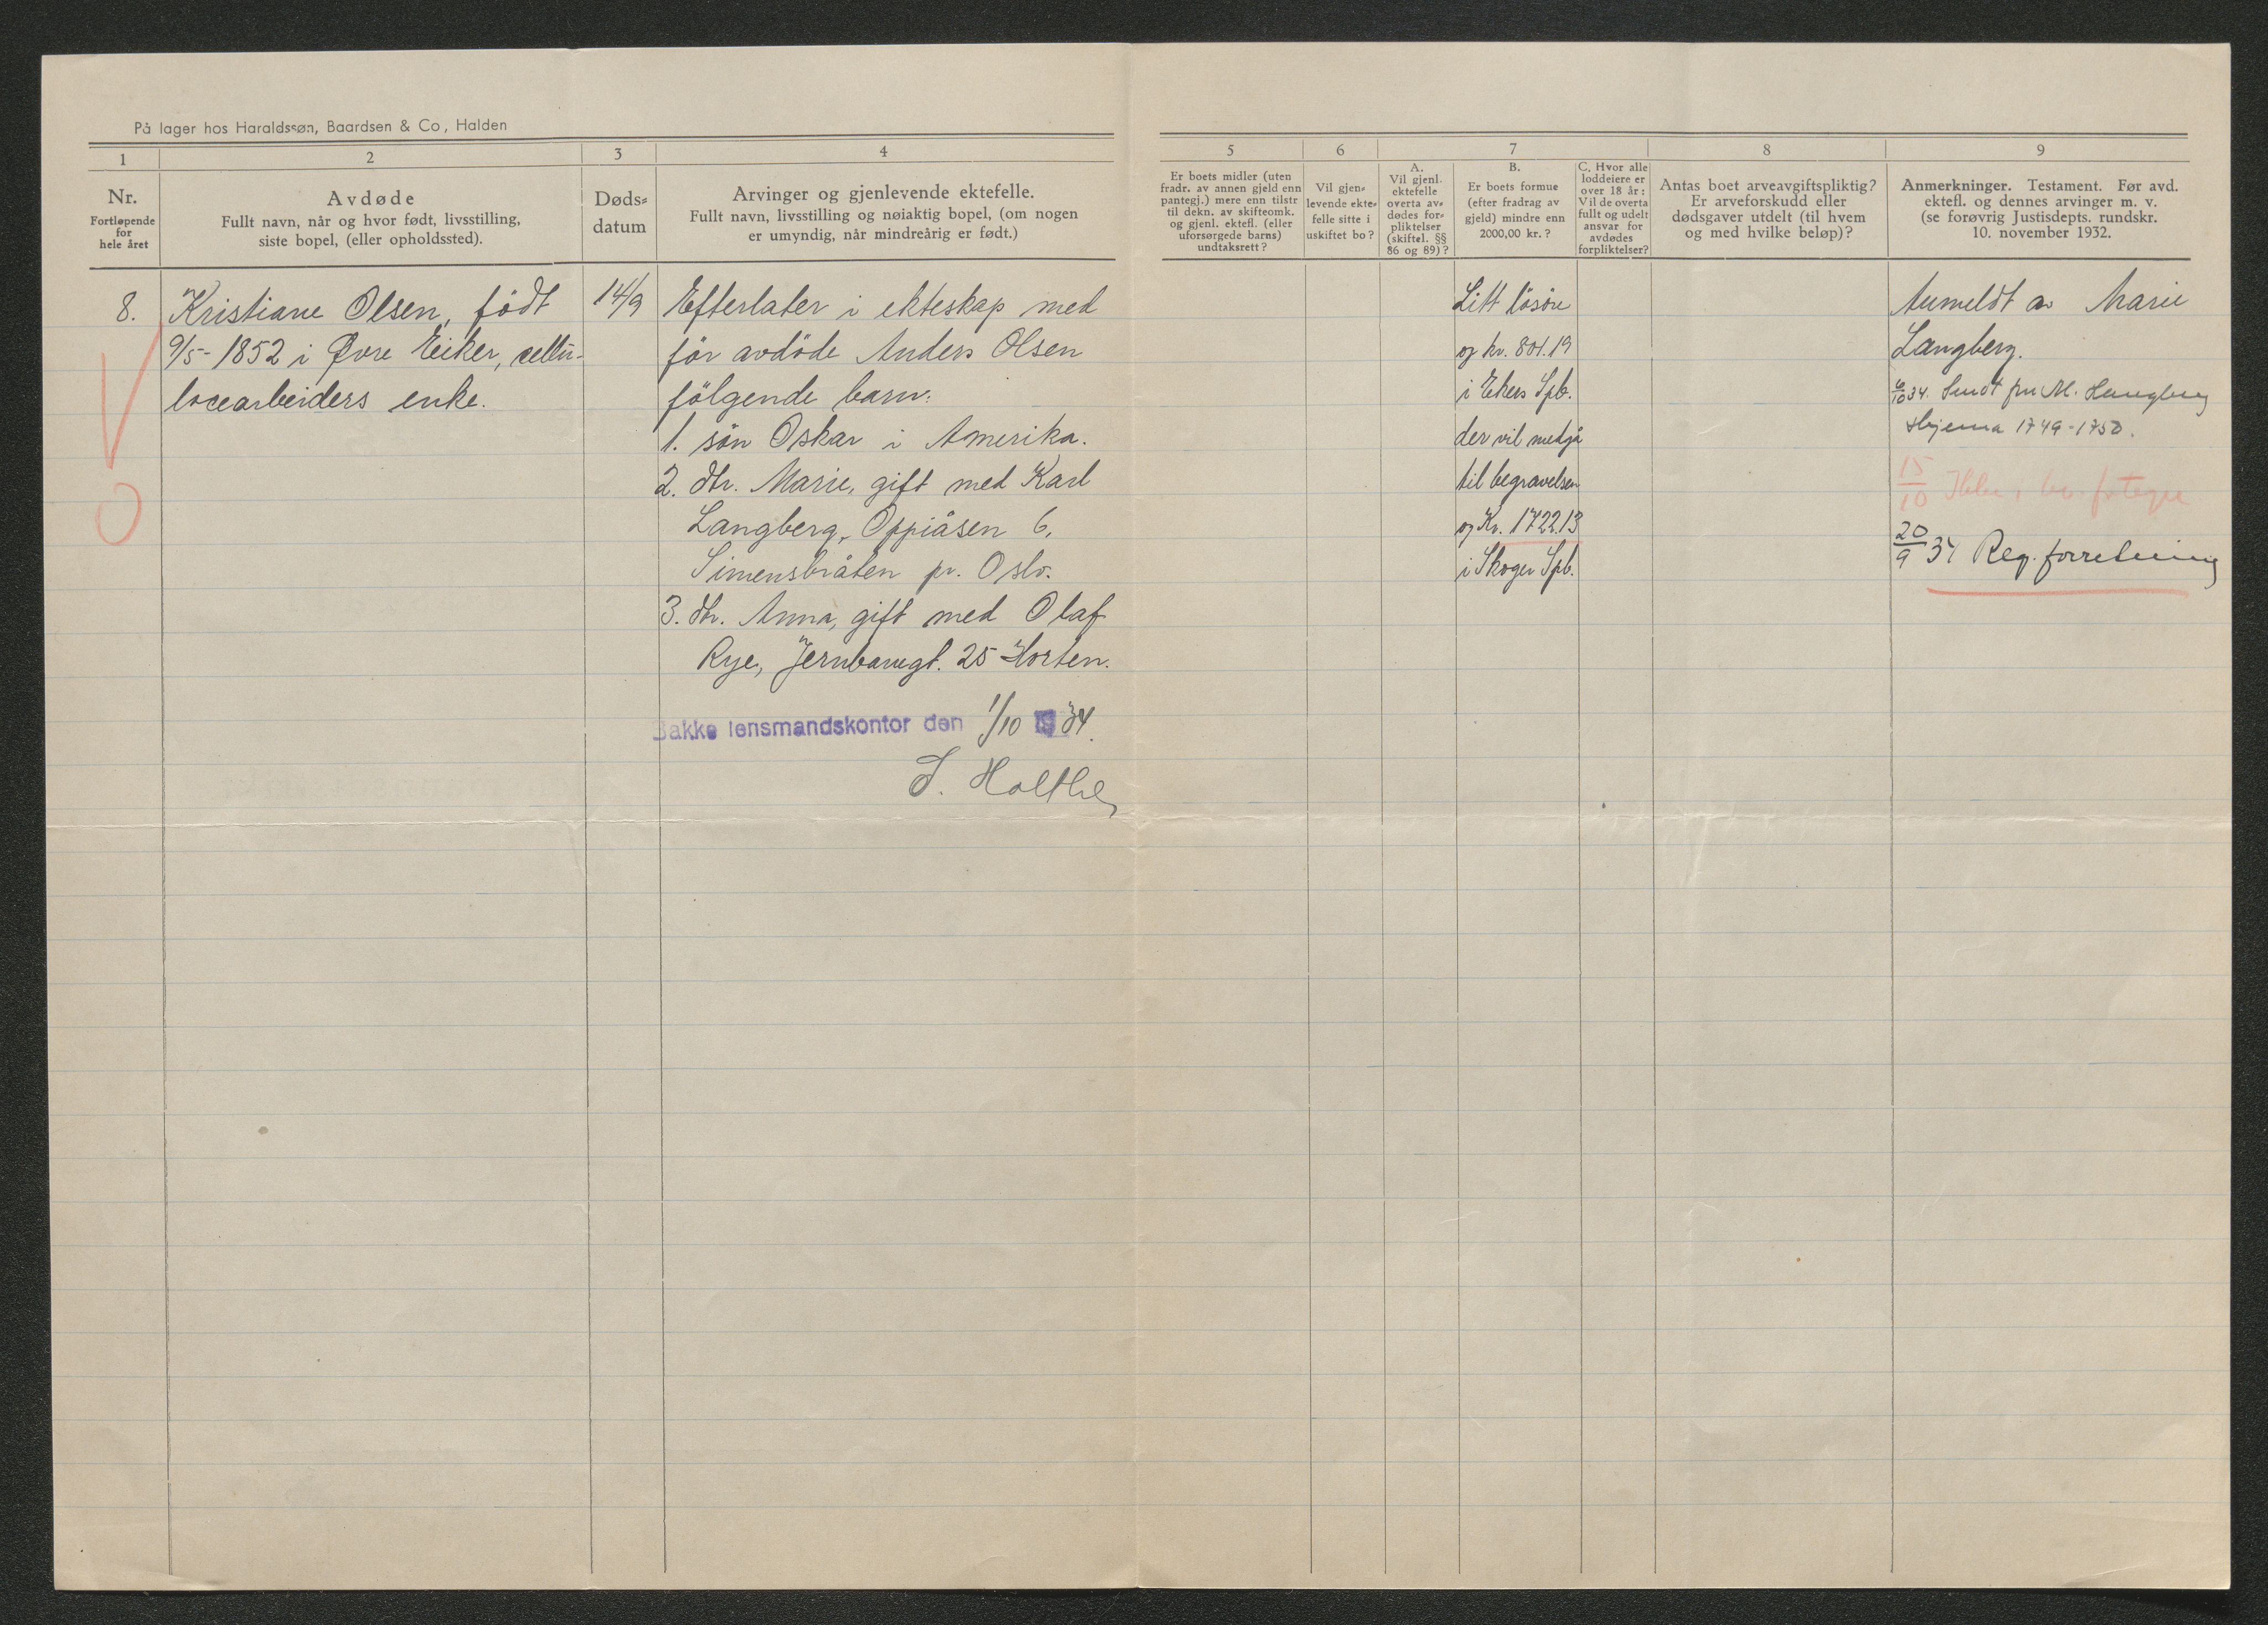 På lager hos Haraldssøn, Baardsen & Co, Halden
1
2
3
4
5
6
7
8
9
Nr.
Fortløpende
for
hele året
Avdøde
Fullt navn, når og hvor født, livsstilling,
siste bopel, (eller opholdssted).
Døds-
datum
Arvinger og gjenlevende ektefelle.
Fullt navn, livsstilling og nøiaktig bopel, (om nogen
er umyndig, når mindreårig er født.)
Er boets midler (uten
fradr. av annen gjeld enn
pantegj.) mere enn tilstr
til dekn. av skifteomk.
og gjenl. ektefl. (eller
uforsørgede barns)
undtaksrett?
Vil gjen-
levende ekte-
felle sitte i
uskiftet bo?
A.
Vil gjenl.
ektefelle
overta av-
dødes for-
pliktelser
(skiftel. §§
86 og 89)?
B.
Er boets formue
(efter fradrag av
gjeld) mindre enn
2000,00 kr.?
C. Hvor alle
loddeiere er
over 18 år:
Vil de overta
fullt og udelt
ansvar for
avdødes
forpliktelser?
Antas boet arveavgiftspliktig?
Er arveforskudd eller
dødsgaver utdelt (til hvem
og med hvilke beløp)?
Anmerkninger. Testament. Før avd.
ektefl. og dennes arvinger m. v.
(se forøvrig Justisdepts. rundskr.
10. november 1932.
8.
Kristiane Olsen, født
9/5-1852 i Øvre Eiker, cellu-
losearbeiders enke.
14/9
Efterlater i ekteskap med
før avdöde Anders Olsen
fölgende barn:
1. sön Oskar i Amerika.
2. dtr. Marie, gift med Karl
Langberg, Oppiåsen 6,
Simensbråten pr. Oslo.
3. dtr. Anna, gift med Olaf
Rye, Jernbanegt. 25 Horten.
Bakke lensmandskontor den 1/10 1934.
S. Holthe
Litt lösöre
og kr. 801.19
i Ekers Spb.
der vil medgå
til begravelsen
og Kr. 1722.13
i Skoger Spb.
Anmeldt av Marie
Langberg.
6/10 34. Sendt fru M. Langberg
1749-1750.
15/10 Ikke
20/9 34 Reg. forretning